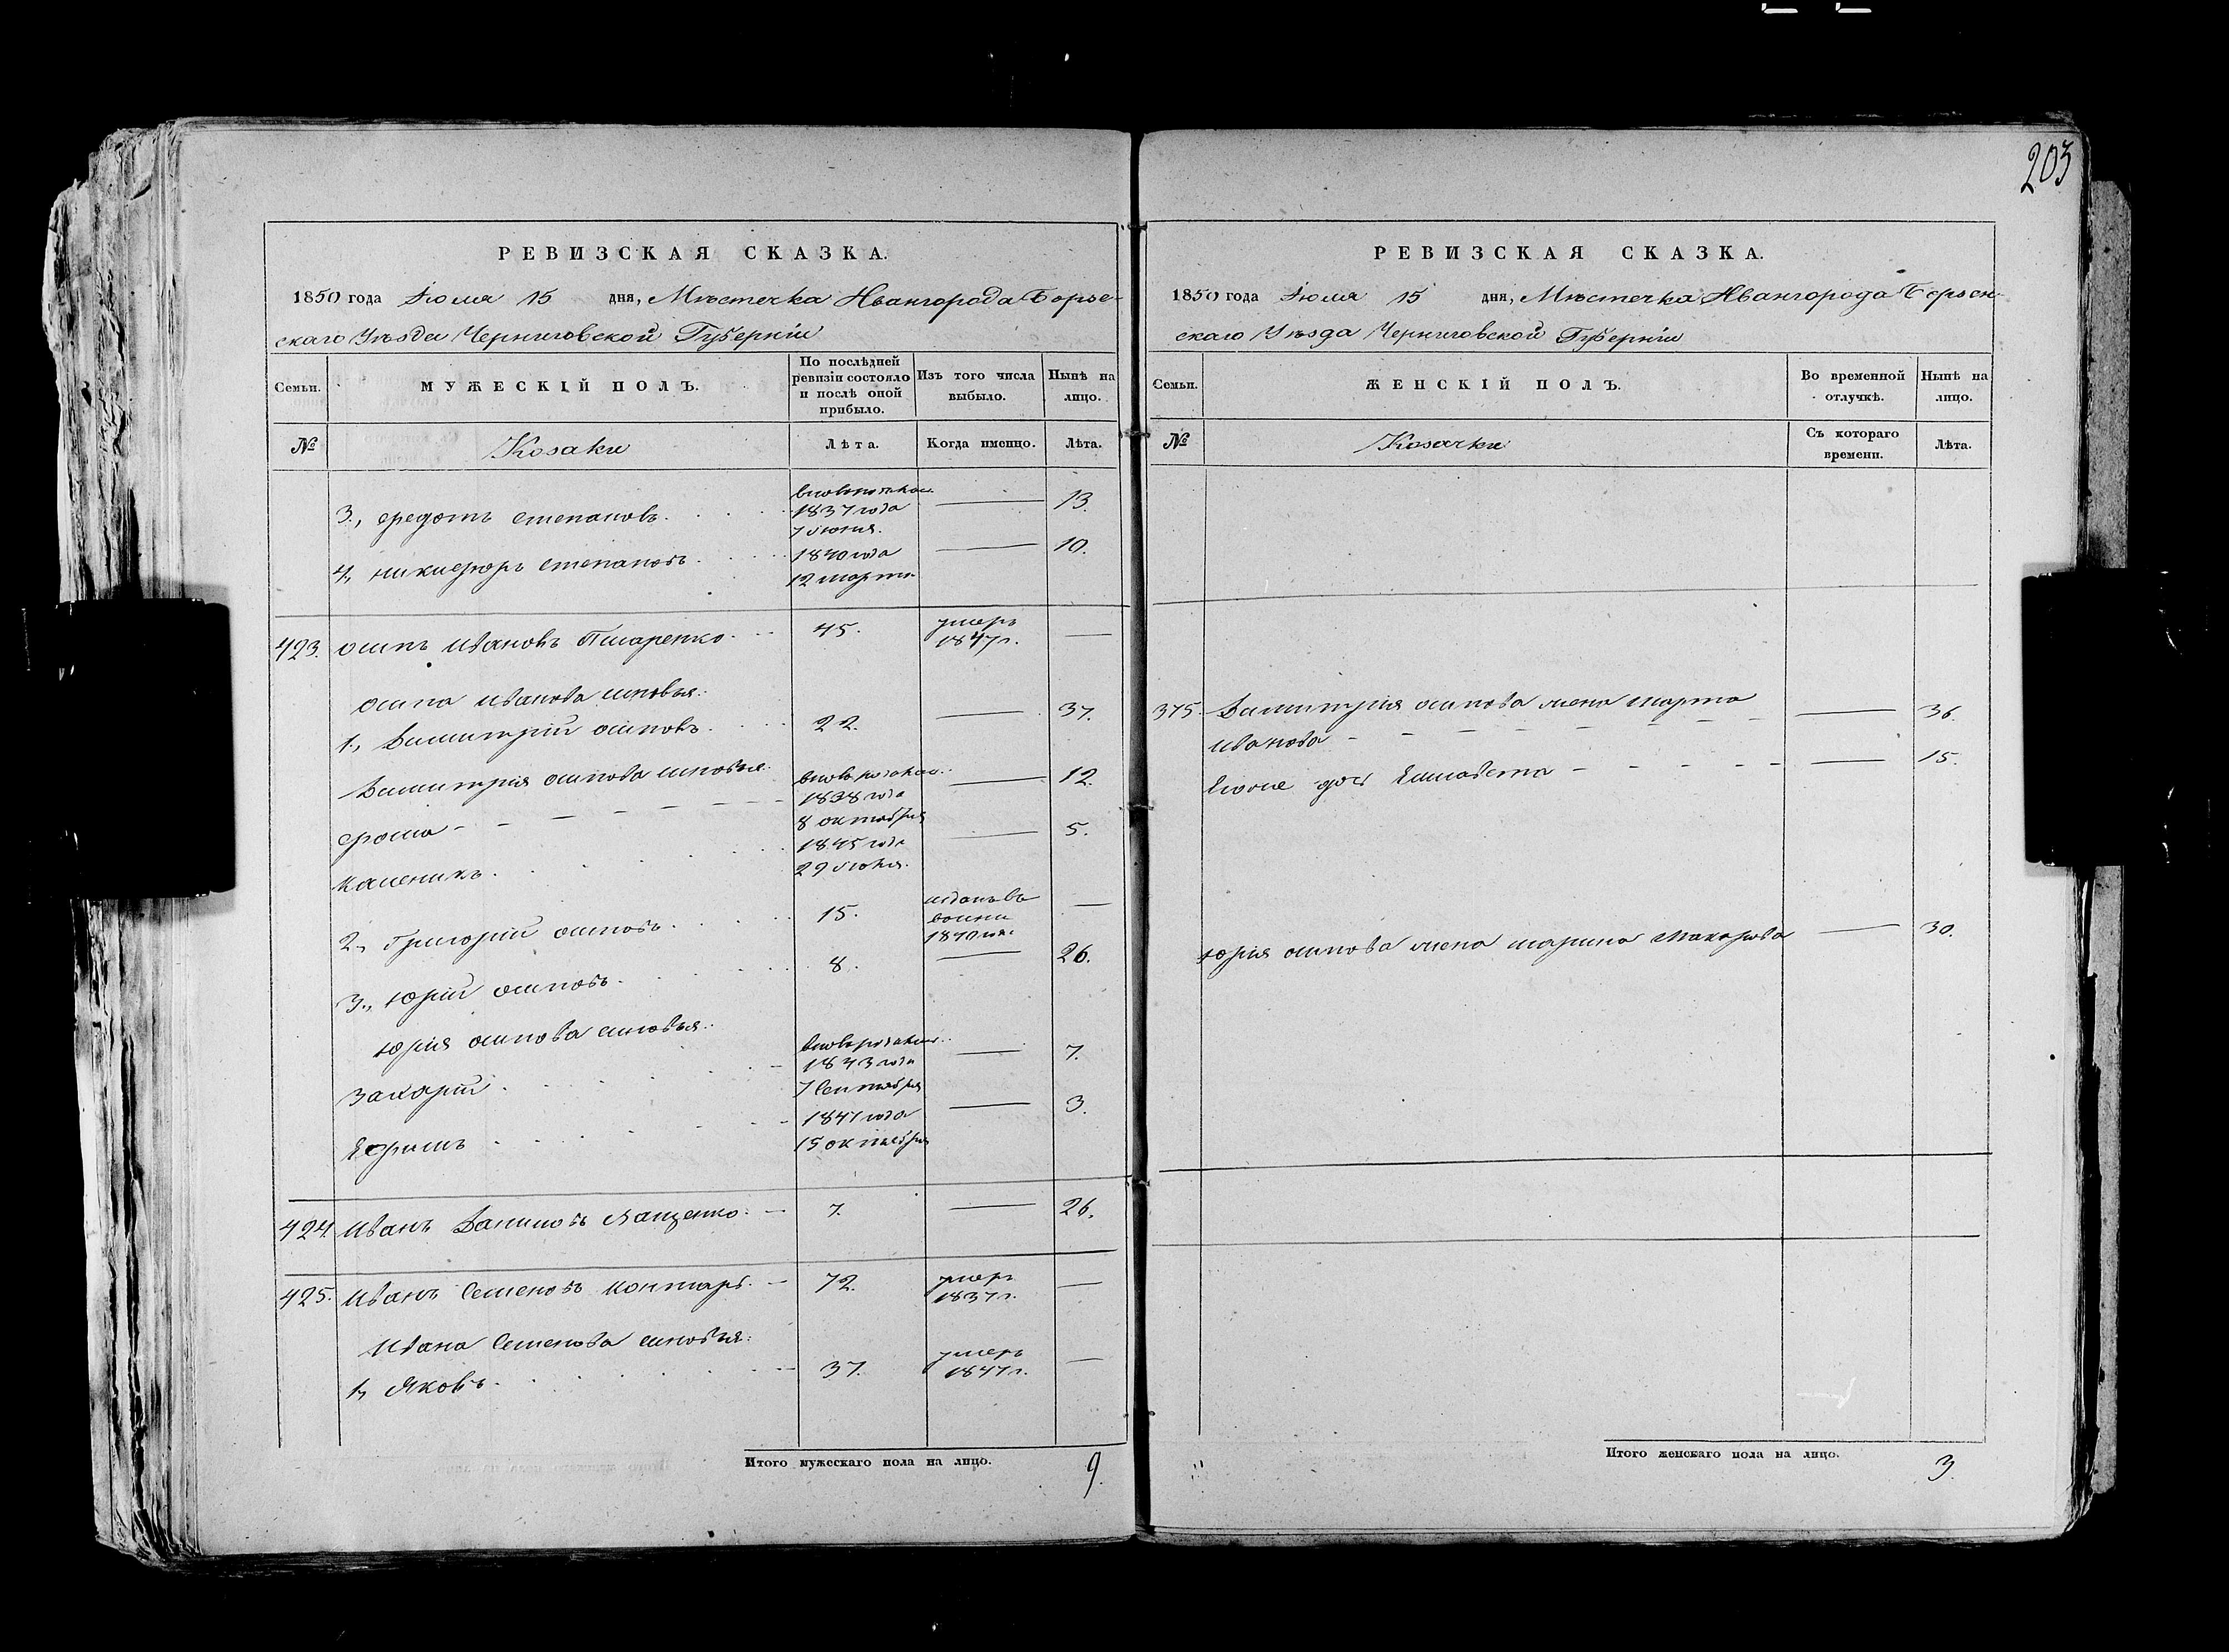 203
РЕВИЗСКАЯ СКАЗКА.
1850 года Іюля 15 дня, Мѣстечка Ивангорода Борзе-
скаго Уѣзда Черниговской Губерніи
Семьи. МУЖЕСКІЙ ПОЛЪ. По послѣдней ревизіи состояло и послѣ оной прибыло. Изъ того числа выбыло. Нынѣ на лицо.
№ Козаки Лѣта. Когда именно. Лѣта.
3., Федотъ Степановъ. 1837 года 7 Іюня. 13.
4., Никифоръ Степановъ. 1840 года 12 марта 10.
423. Осипъ Ивановъ Писаренко. 45. умеръ 1847 г.
Осипа Иванова сыновья:
1., Димитрій Осиповъ. 22. 37.
Димитрія Осипова сыновья: вновь рожден.
Фома 1838 года 8 октября 12.
Каленикъ. 1845 года 29 Іюня. 5.
2., Григорій Осиповъ. 15. 1840 г.
3., Юрій Осиповъ. 8. 26.
Юрія Осипова сыновья:
Захарій. 1843 года 7 Сентября 7.
Ефимъ 1847 года 15 октября 3.
424. Иванъ Даниловъ Лащенко. 7. 26.
425. Иванъ Семеновъ Контаръ. 72. умеръ 1837 г.
Ивана Семенова сыновья:
1, Яковъ. 37. умеръ 1847 г.
Итого мужескаго пола на лицо. 9.
РЕВИЗСКАЯ СКАЗКА.
1850 года Іюля 15 дня, Мѣстечка Ивангорода Борзен-
скаго Уѣзда Черниговской Губерніи
Семьи. ЖЕНСКІЙ ПОЛЪ. Во временной отлучкѣ. Нынѣ на лицо.
№ Козачки Съ котораго времени. Лѣта.
375. Димитрія Осипова жена Марфа
Иванова 36.
дочь Елисавета 15.
Юрія Осипова жена Марина Макарова 30.
Итого женскаго пола на лицо. 3.